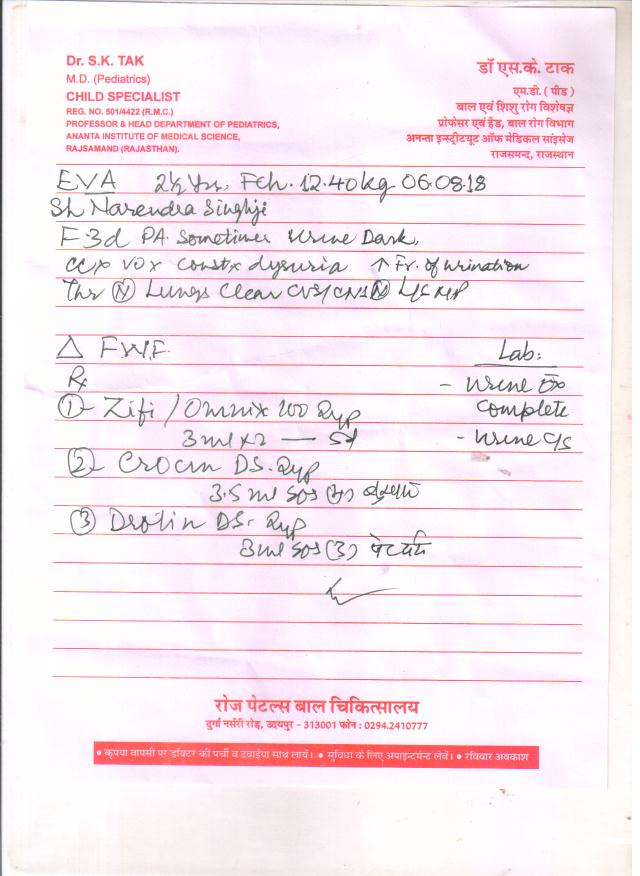 Dr. S.K. TAK
M.D. (Pediatrics)
CHILD SPECIALIST
REG. NO. 501/4422 (R.M.C.)
PROFESSOR & HEAD DEPARTMENT OF PEDIATRICS,
ANANTA INSTITUTE OF MEDICAL SCIENCE,
RAJSAMAND (RAJASTHAN).
डॉ एस.के. टाक
एम.डी. ( पीड )
बाल एवं शिशु रोग विशेषज्ञ
प्रोफेसर एवं हैड, बाल रोग विभाग
अनन्ता इन्स्टीट्यूट ऑफ मेडिकल साइंसेज
राजसमन्द, राजस्थान
EVA 2½ Yrs, Fch. 12.40kg 06.08.18
Sh Narendra Singhji
F 3d PA. Sometimes Urine Dark,
Constx dysuria ↑ Fr. of urination
Thr (N) Lungs Clear CVS/CNS (N)
△ F.W.F.
Lab:
Rx
- Urine
① - Zifi / Omnix 100 Syp
Complete
3ml x 2 — 5d
- Urine C/S
② - Crocin DS. Syp
3.5 ml SOS बुखार
③ Drotin DS. Syp
3ml SOS (3) पेट दर्द
रोज पेटल्स बाल चिकित्सालय
दुर्गा नर्सरी रोड़, उदयपुर - 313001 फोन : 0294.2410777
• कृपया वापसी पर डॉक्टर की पर्ची व दवाईया साथ लावें। • सुविधा के लिए अपाइन्टमेंट लेवें। • रविवार अवकाश